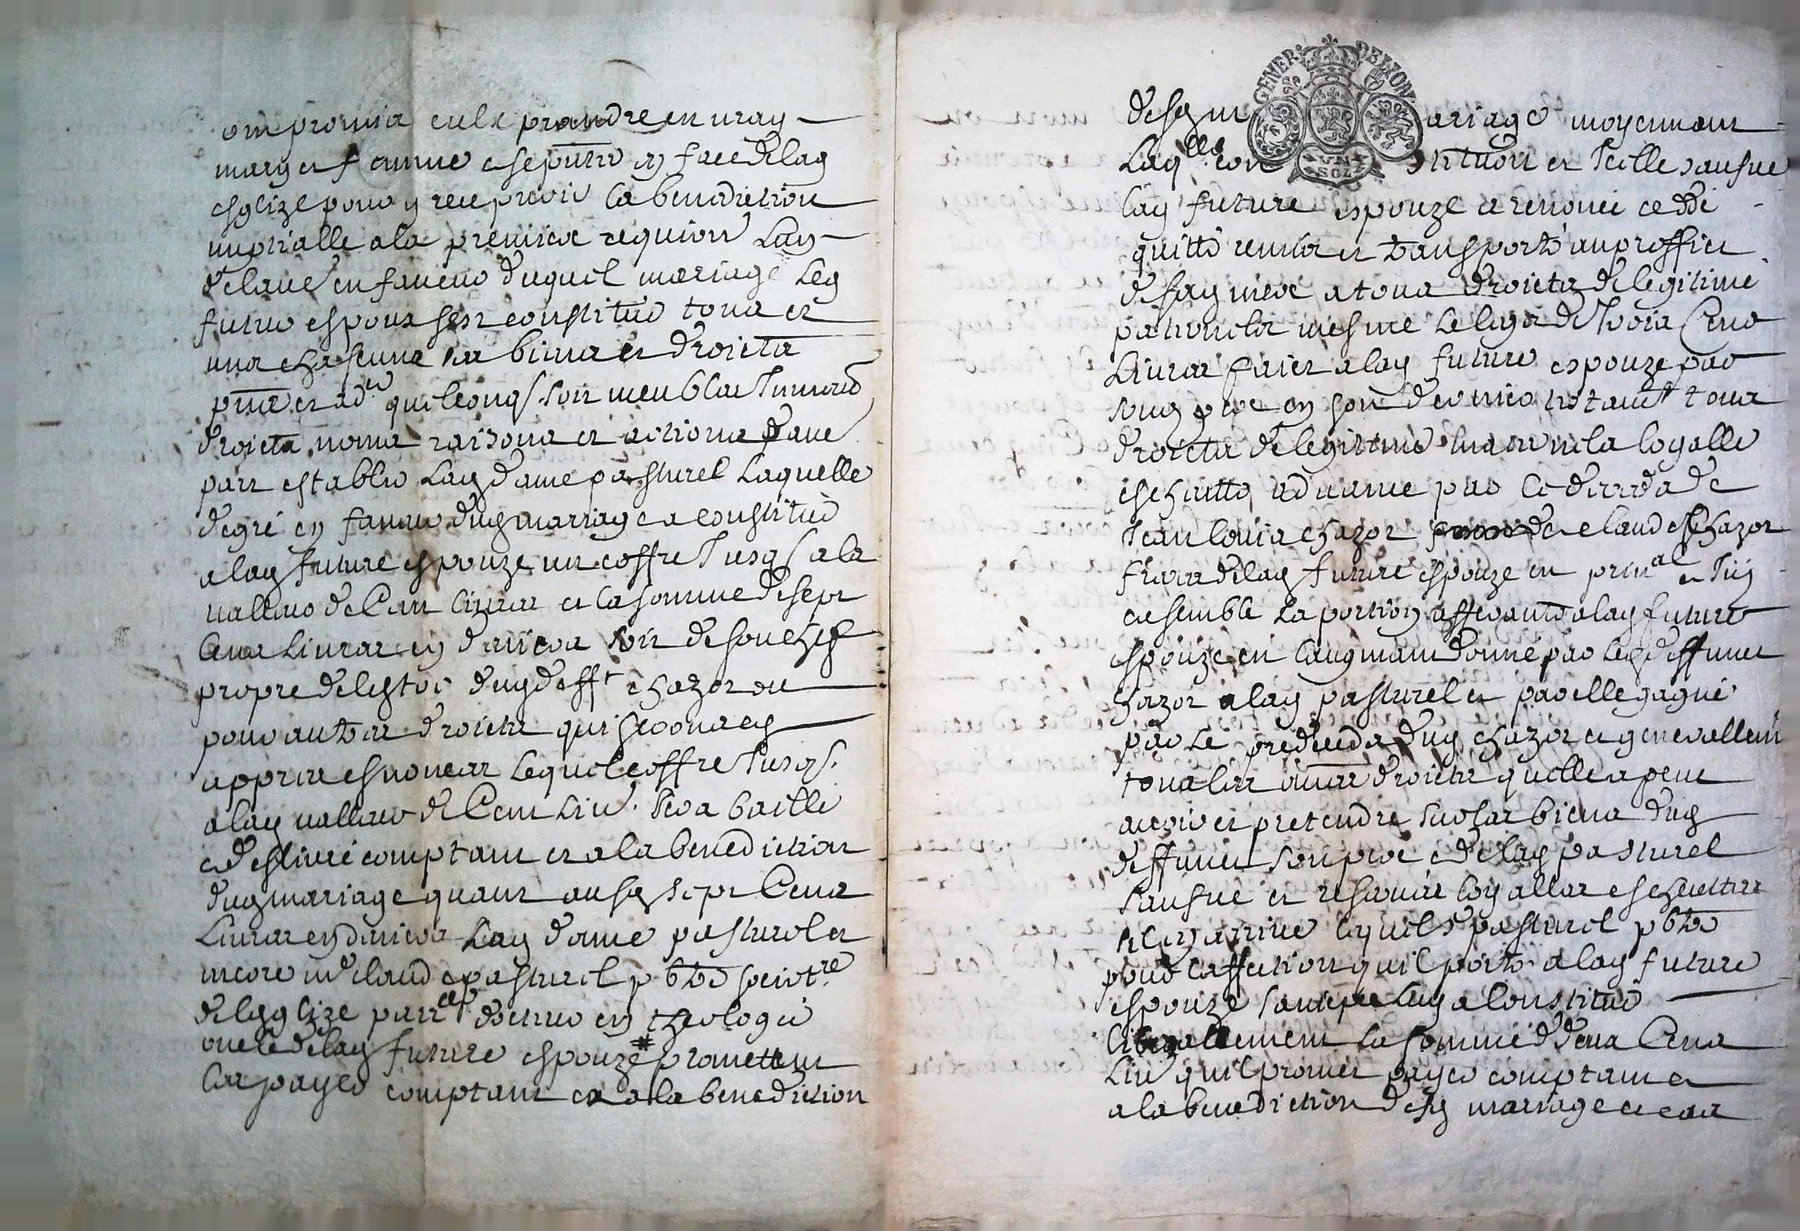 ont promis eulx prandre en vray
mary et femme espoutre en face de lad
esglize pour y recepvoir la benediction
nuptialle a la premiere requisition Lun
de lautre en faveur duquel mariage Led
futurs espoux se sont constitué tous et
uns chascuns ses biens et droicts
pnts et adv quelconqs soit meubles Immeub
droicts noms raisons et actions dautre
part establie Lad dame pasturel Laquelle
de gré en faveur dud mariage a constitué
a lad future espouze un coffre Jusqs a la
valleur de Cent livres et la somme de sept
Cens Livres en deniers soit de son chef
propre de lestoc dud defft chazot ou
pour autres droicts quelconques
apprès esnoncer Lequel coffre Jusqs
a lad valleur de Cent Liv. sera baillé
et deslivré comptant et a la benediction
dud mariage quant ausd sept Cens
Livres en deniers Lad dame pasturel et
encore me claude pasturel pbtre socit.re
de lesglize docteur en theologie
oncle de lad future espouze promettent
les payer comptant et a la benediction
GENER. DE LION
VN SOL
desd mariage moyennant
Laqlle constitution et Icelle sauve
lad future espouze a renoncé ceddé
quitté remis et transporté au proffict
de sad mere a tous droicts de legitime
paternels mesme Le legs de Trois Cens
Livres faict a lad future espouze par
sond pere en son dernier testamt tous
droicts de legitime maternels loyalle
eschutte advenue par le deceds de
Jean louis chazot et claude chazot
freres de lad future espouze en prin.al et Inst
ensemble La portion afferante a lad future
espouze en laugment donné par Led deffunct
chazot a lad pasturel et par elle gagné
par Le predeceds dud chazot et generallemt
tous les autres droicts quelle a peut
avoir et pretendre sur les biens dud
deffunct son pere et de lad pasturel
sauve et reservée loyalles eschuttes
sil en arrive lequel sr pasturel pbtre
pour laffection quil porte a lad future
espouze sa niepce Luy a Constitué
liberallement La somme de deux Cens
Liv quil promet payer comptant et
a la benediction desd mariage et ces